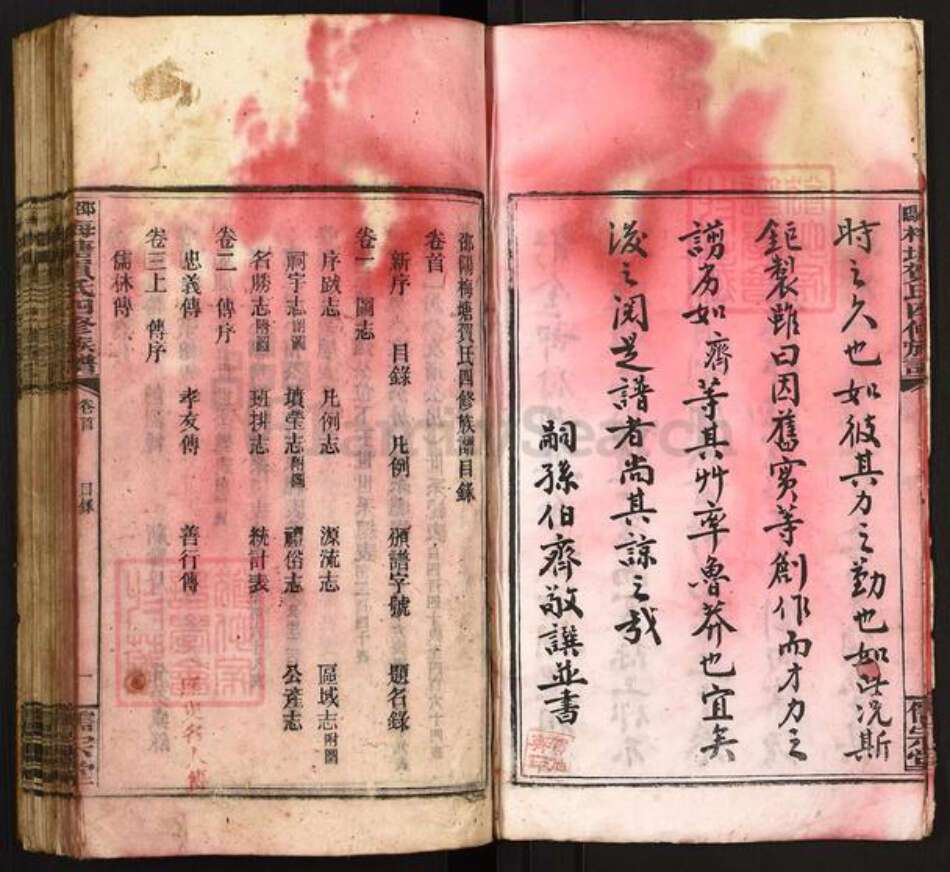 時之久也如彼其力之勤也如此况斯
鉅製雖曰因舊實等創作而才力之
謭劣如齊等其艸率魯莽也宜矣
後之閱是譜者尚其諒之哉
嗣孫伯齊敬譔並書
邵陽梅塘賀氏四修族譜目錄
卷首
新序 目錄 凡例 頒譜字號 題名錄
卷一 圖志
序跋志 凡例志 源流志 區域志附圖
祠宇志附圖 墳塋志附圖 禮俗志 公產志
名勝志附圖 班排志 統計表
卷二 傳序
忠義傳 孝友傳 善行傳
卷三上 傳序
儒林傳
卷首 目錄 一